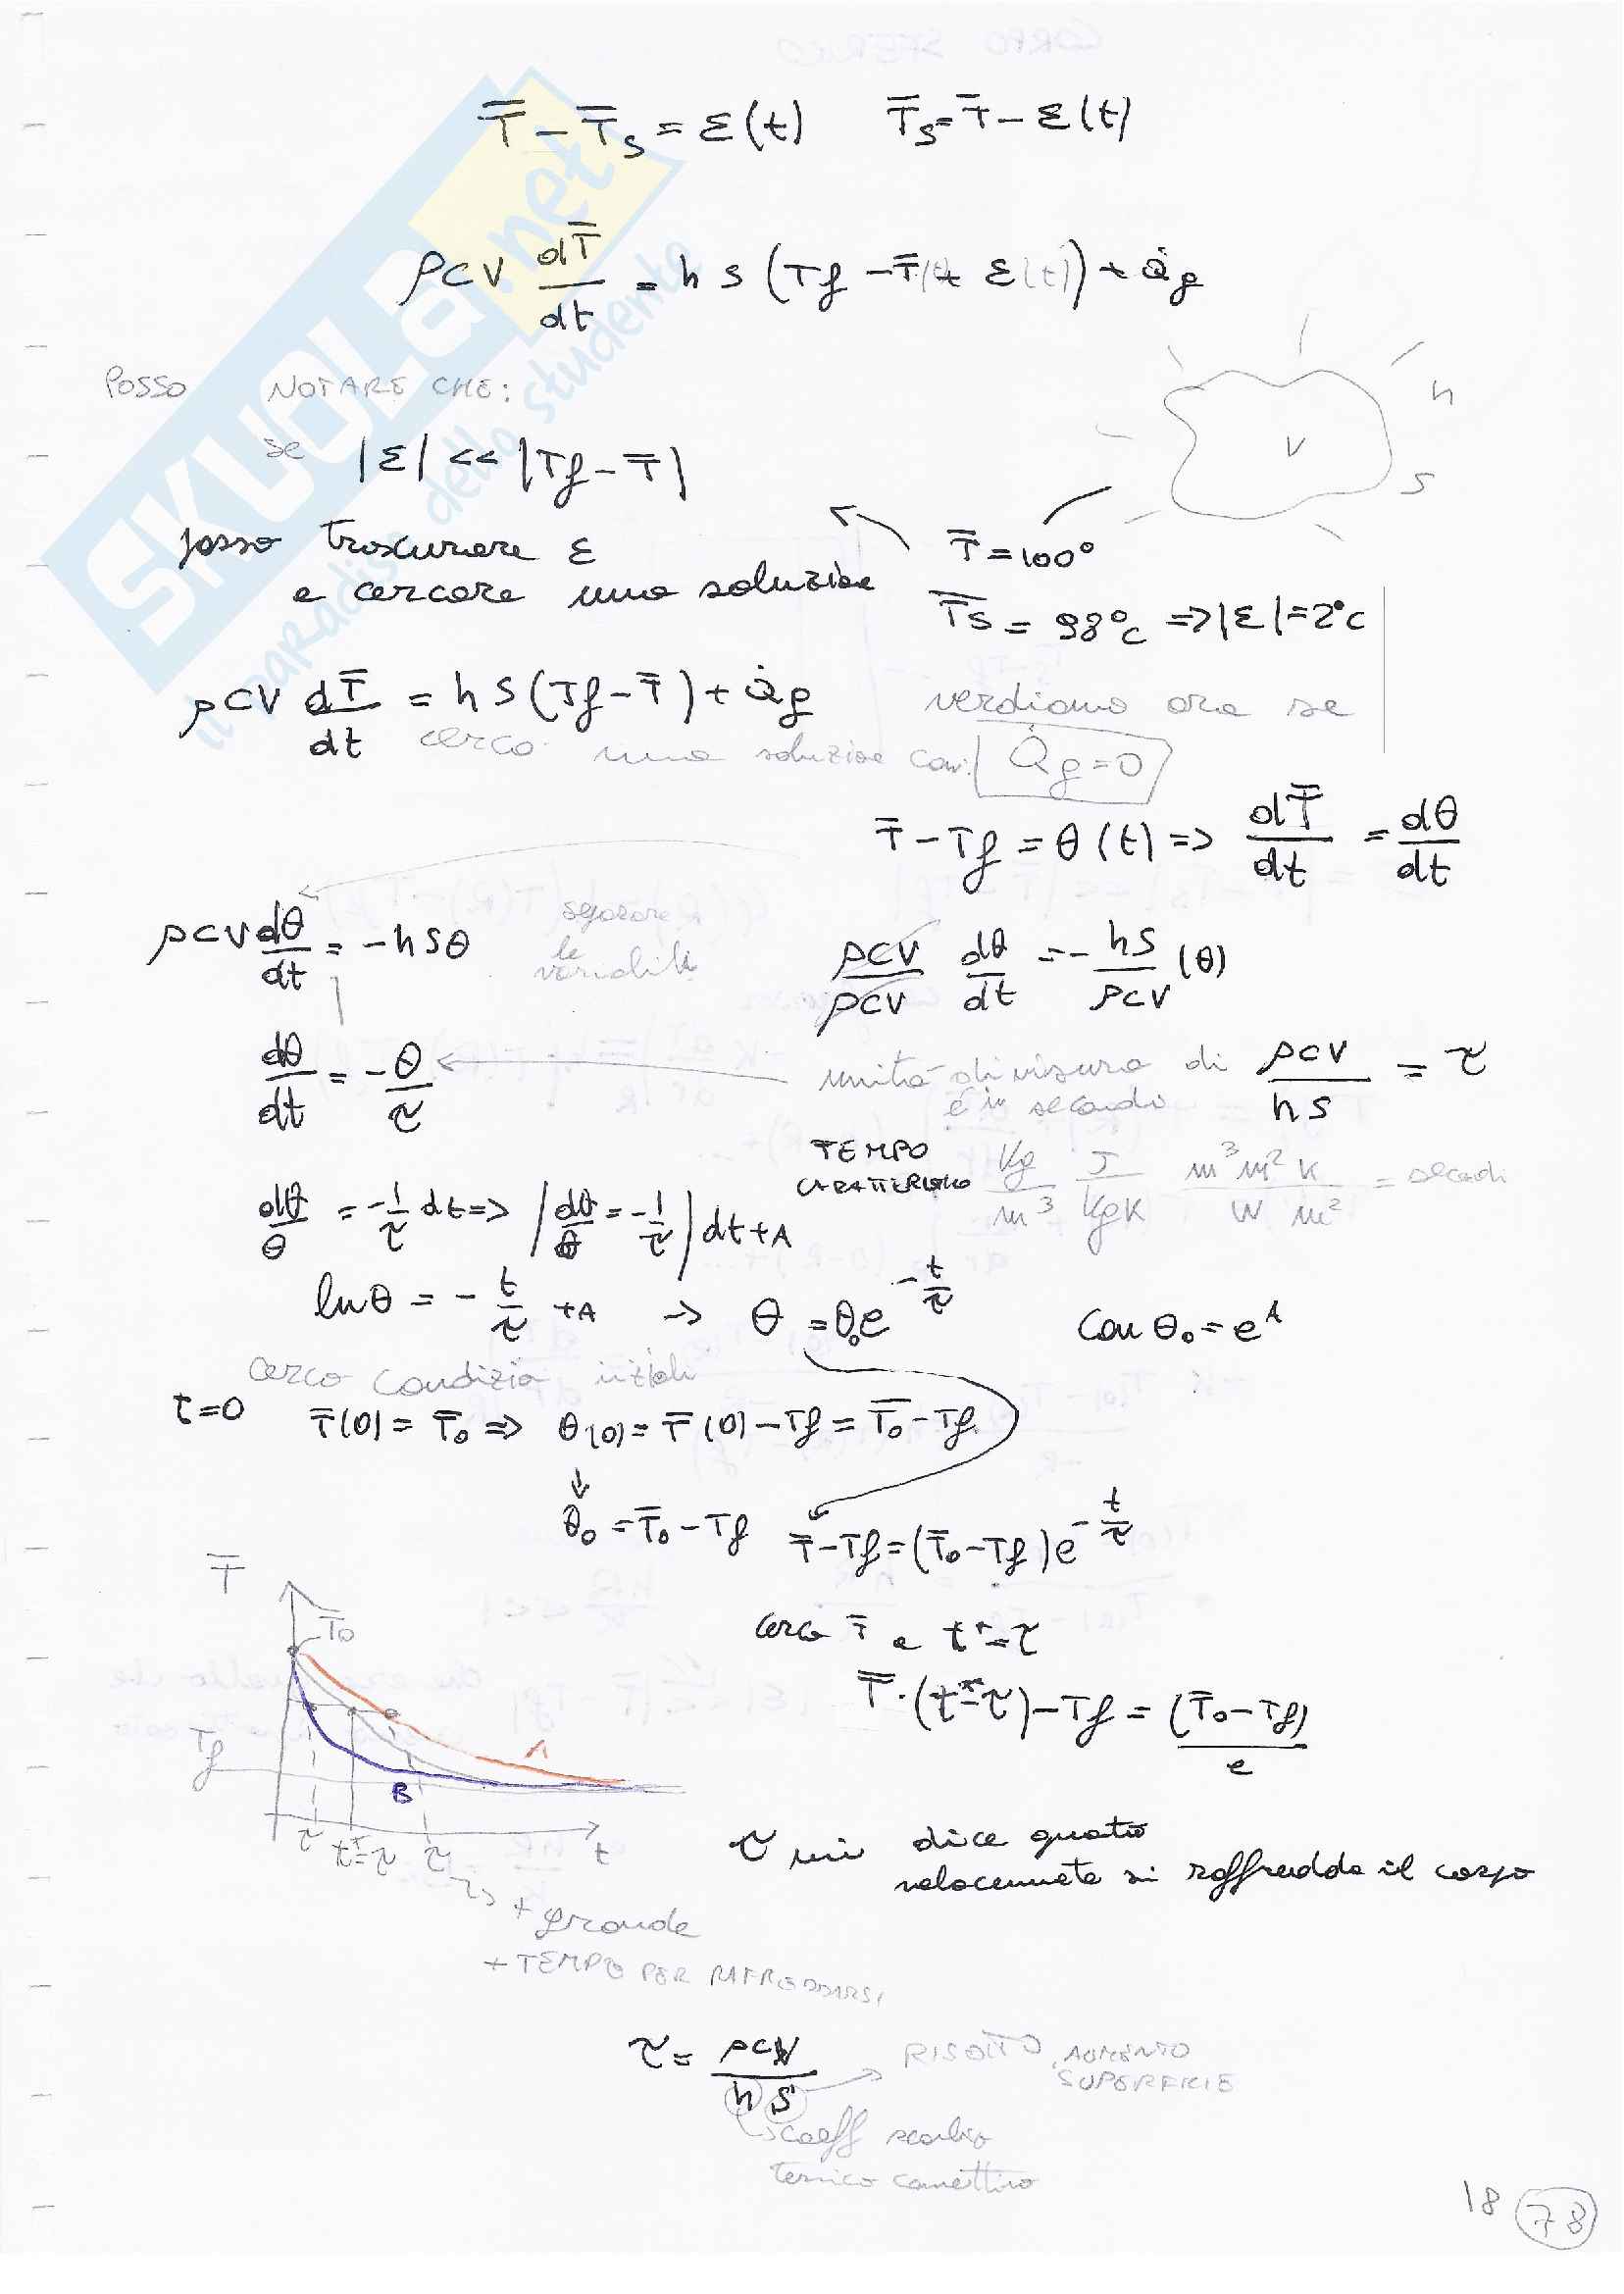 T̿ - T̄s = ε(t)    T̄s = T̿ - ε(t)
ρCV dT̿/dt = h S (Tf - T̿(t) + ε(t)) + Q̇g
POSSO NOTARE CHE:
se |ε| << |Tf - T̿|
h
V
S
posso trascurare ε
e cercare una soluzione
T̿ = 100°
T̄s = 98°C => |ε| = 2°C
ρCV dT̿/dt = h S (Tf - T̿) + Q̇g
verdiamo ora se
cerco una soluzione con: Q̇g = 0
T̿ - Tf = θ(t) => dT̿/dt = dθ/dt
ρCV dθ/dt = -hSθ
separare
le
variabili
ρCV/ρCV dθ/dt = - hS/ρCV (θ)
dθ/dt = - θ/τ
unità di misura di ρCV/hS = τ
è in secondi
TEMPO
CARATTERISTICO
Kg/m³ J/KgK m³m²K/W m² = secondi
dθ/θ = -1/τ dt => ∫ dθ/θ = -1/τ ∫ dt + A
ln θ = - t/τ + A -> θ = θ₀ e^(-t/τ)    con θ₀ = e^A
cerco condizioni iniziali
t=0    T̿(0) = T̿₀ => θ(0) = T̿(0) - Tf = T̿₀ - Tf
θ₀ = T̿₀ - Tf    T̿ - Tf = (T̿₀ - Tf) e^(-t/τ)
T̿
T̿₀
Tf
A
B
τ t*=τ τ t
cerco T̿ a t* = τ
T̿·(t*=τ) - Tf = (T̿₀ - Tf)/e
τ mi dice quanto
velocemente si raffredda il corpo
+ grande
+ TEMPO PER RAFREDDARSI
τ = ρCV/hS
RISOTTO, AUMENTO
SUPERFICIE
coeff scambio
termico convettivo
18 78
SKUOLA.net
il paradiso dello studente